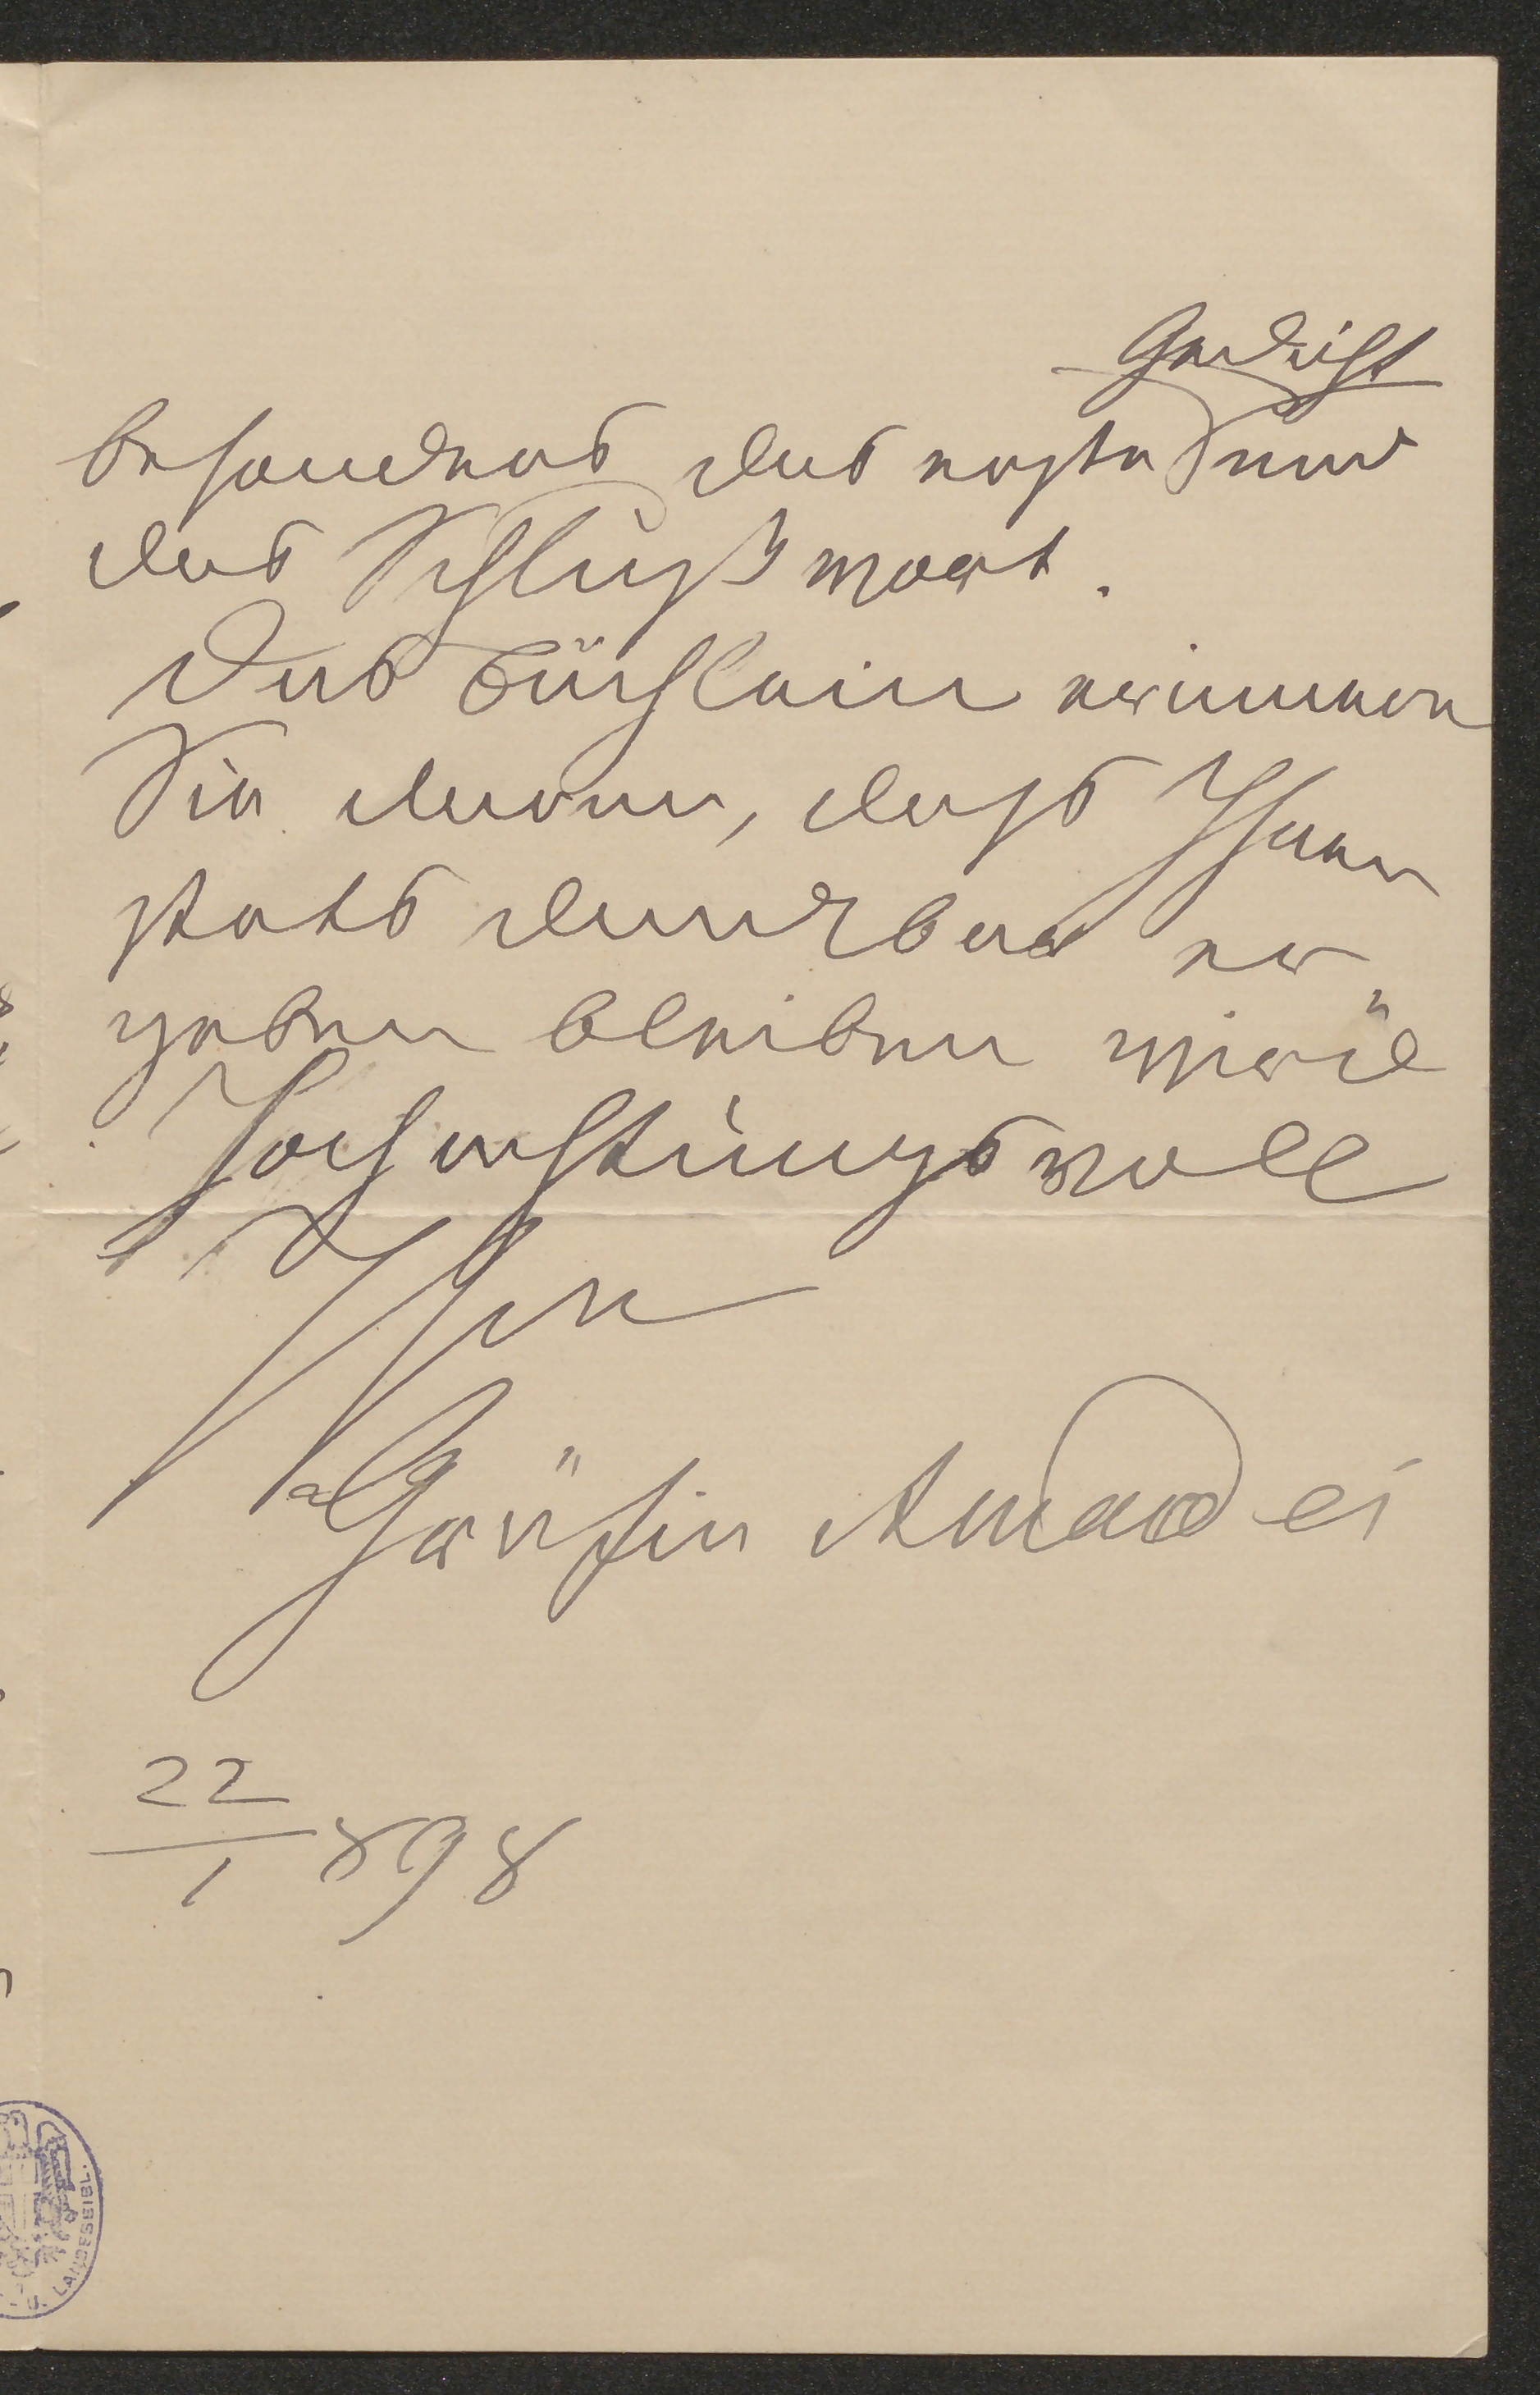 Gedicht
besonders das erste und
das Schlußwort.
Das Büchlein erinnere
Sie daran, dass Ihnen
stets dankbar er
geben bleiben wird
Hochachtungsvoll
Ihre
Gräfin Amadei
22
1 898
U. LANDESBIBL.